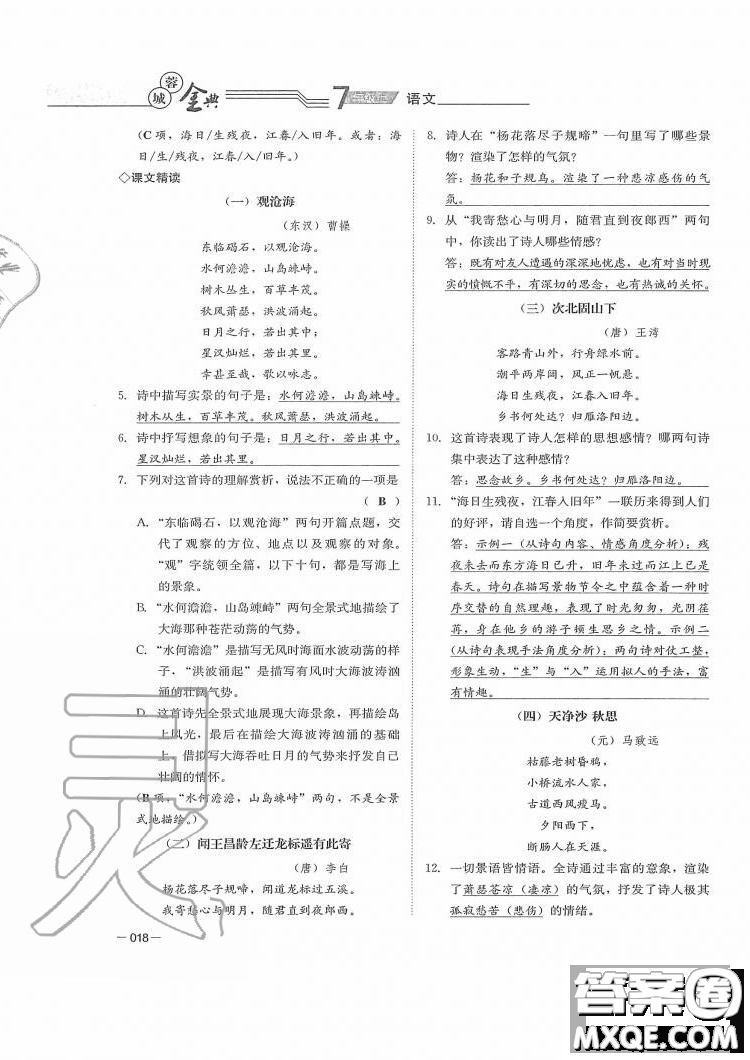 蓉城金典 7 年级上 语文
(C 项，海日/生残夜，江春/入旧年。或者：海
日/生/残夜，江春/入/旧年。)
◇课文精读
(一) 观沧海
(东汉) 曹操
东临碣石，以观沧海。
水何澹澹，山岛竦峙。
树木丛生，百草丰茂。
秋风萧瑟，洪波涌起。
日月之行，若出其中；
星汉灿烂，若出其里。
幸甚至哉，歌以咏志。
5. 诗中描写实景的句子是：水何澹澹，山岛竦峙。
树木丛生，百草丰茂。秋风萧瑟，洪波涌起。
6. 诗中抒写想象的句子是：日月之行，若出其中。
星汉灿烂，若出其里。
7. 下列对这首诗的理解赏析，说法不正确的一项是
( B )
A. “东临碣石，以观沧海”两句开篇点题，交
代了观察的方位、地点以及观察的对象。
“观”字统领全篇，以下十句，都是写海上
的景象。
B. “水何澹澹，山岛竦峙”两句全景式地描绘了
大海那种苍茫动荡的气势。
C. “水何澹澹”是描写无风时海面水波动荡的样
子，“洪波涌起”是描写有风时大海波涛汹
涌的壮阔气势。
D. 这首诗先全景式地展现大海景象，再描绘岛
上风光，最后在描绘大海波涛汹涌的基础
上，借抒写大海吞吐日月的气势来抒发自己
壮阔的情怀。
(B 项，“水何澹澹，山岛竦峙”两句，不是全景
式地描绘。)
(二) 闻王昌龄左迁龙标遥有此寄
(唐) 李白
杨花落尽子规啼，闻道龙标过五溪。
我寄愁心与明月，随君直到夜郎西。
— 018 —
8. 诗人在“杨花落尽子规啼”一句里写了哪些景
物？渲染了怎样的气氛？
答：杨花和子规鸟。渲染了一种悲凉感伤的气
氛。
9. 从“我寄愁心与明月，随君直到夜郎西”两句
中，你读出了诗人哪些情感？
答：既有对友人遭遇的深深地忧虑，也有对当时现
实的愤慨不平，有深切的思念，也有热诚的关怀。
(三) 次北固山下
(唐) 王湾
客路青山外，行舟绿水前。
潮平两岸阔，风正一帆悬。
海日生残夜，江春入旧年。
乡书何处达？归雁洛阳边。
10. 这首诗表现了诗人怎样的思想感情？哪两句诗
集中表达了这种感情？
答：思念故乡。乡书何处达？归雁洛阳边。
11. “海日生残夜，江春入旧年”一联历来得到人们
的好评，请自选一个角度，作简要赏析。
答：示例一（从诗句内容、情感角度分析）：残
夜未去而东方海日已升，旧年未过而江上已是
春天。诗句在描写景物节令之中，蕴含着一种时
序交替的自然理趣，表现了时光匆匆，光阴荏
苒，身在他乡的游子顿生思乡之情。示例二
（从诗句表现手法角度分析）：两句诗对仗工整，
形象生动，“生”与“入”运用拟人的手法，富
有情趣。
(四) 天净沙 秋思
(元) 马致远
枯藤老树昏鸦，
小桥流水人家，
古道西风瘦马。
夕阳西下，
断肠人在天涯。
12. 一切景语皆情语。全诗通过丰富的意象，渲染
了萧瑟苍凉（凄凉）的气氛，抒发了诗人极其
孤寂愁苦（悲伤）的情绪。
答案圈
MXQE.COM